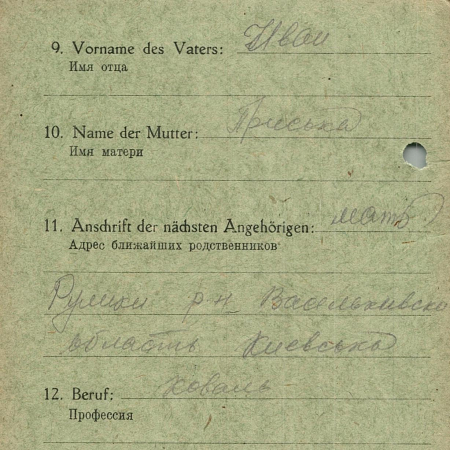 9. Vorname des Vaters: Иван
Имя отца
10. Name der Mutter: Приська
Имя матери
11. Anschrift der nächsten Angehörigen: мать
Адрес ближайших родственников
р-н
область Киевська
12. Beruf: коваль
Профессия